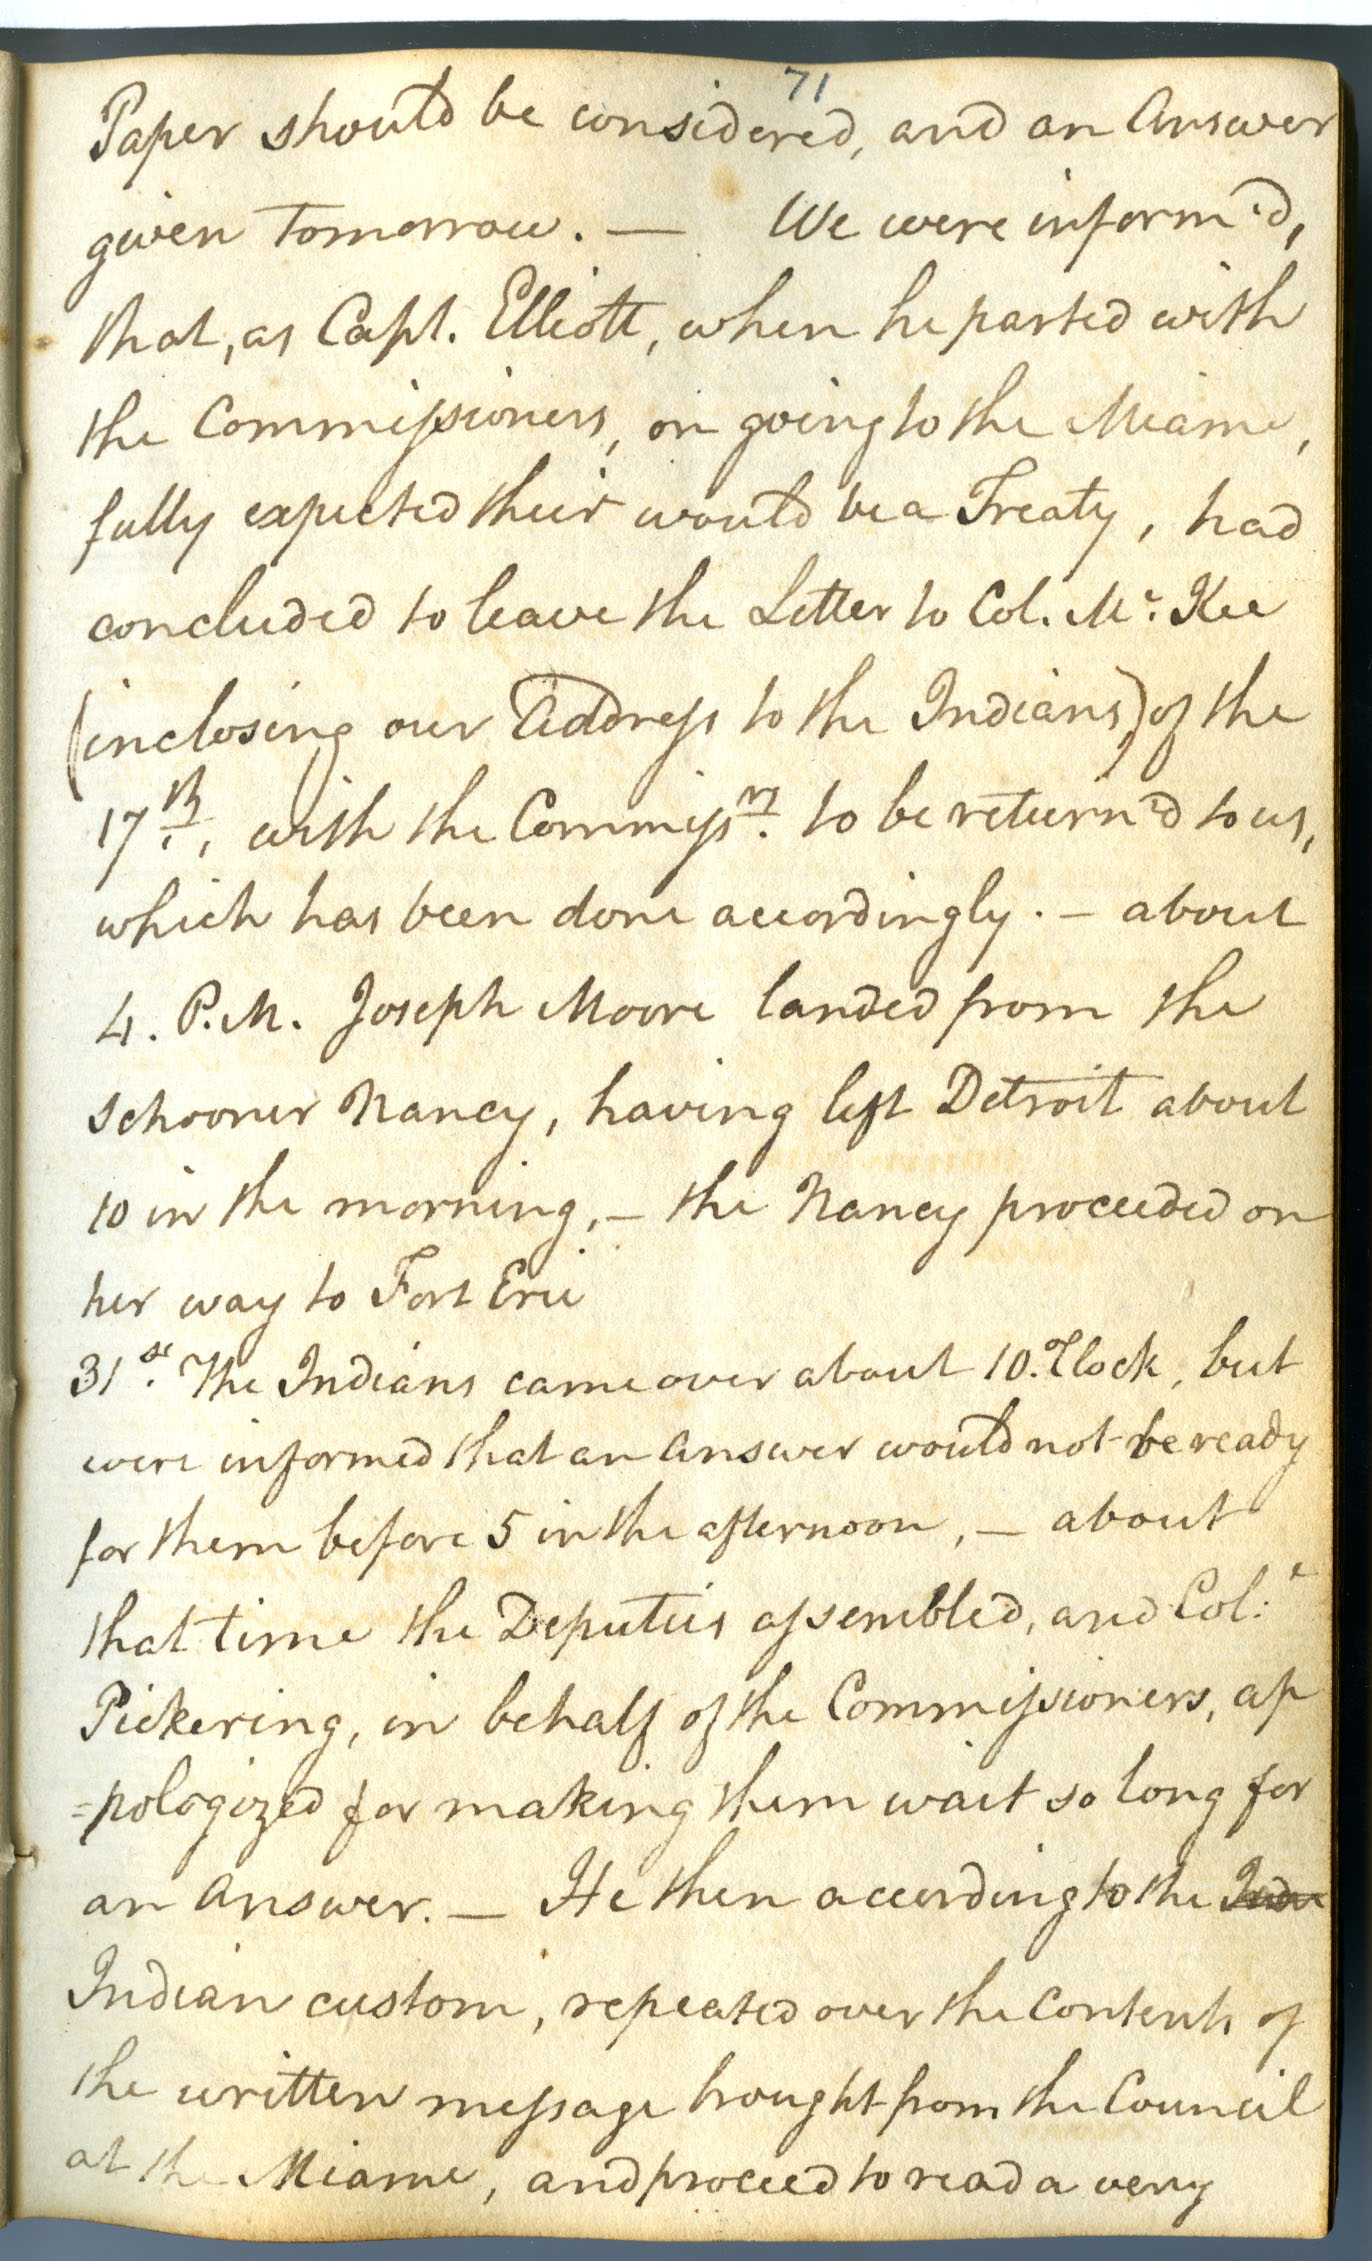 71
Paper should be considered, and an Answer
given tomorrow. — We were inform'd,
that, as Capt. Elliott, when he parted with
the Commissioners, on going to the Miame,
fully expected their would be a Treaty, had
concluded to leave the Letter to Col. Mc. Kee
(inclosing our Address to the Indians) of the
17th, with the Commissrs. to be return'd to us,
which has been done accordingly. — about
4. P.M. Joseph Moore landed from the
schooner Nancy, having left Detroit about
10 in the morning, — the Nancy proceeded on
her way to Fort Erie
31st. The Indians came over about 10. Clock, but
were informed that an Answer would not be ready
for them before 5 in the afternoon, — about
that time the Deputies assembled, and Col:
Pickering, in behalf of the Commissioners, ap
=pologized for making them wait so long for
an Answer. — He then according to the
Indian custom, repeated over the Contents of
the written message brought from the Council
at the Miame, and proceed to read a very